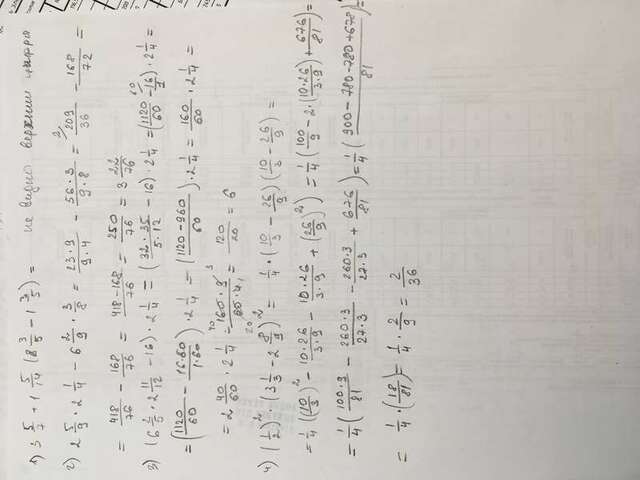 1) 3 5/7 + 1 5/14 (8 3/5 - 1 3/5) = не видно верхнии цифры
2) 2 5/9 · 2 1/4 - 6 2/9 · 3/8 = 23·9/9·4 - 56·3/9·8 = 209/36 - 168/72 =
= 418/76 - 168/76 = 418-168/76 = 250/76 = 3 22/76
3) (6 2/5 · 2 11/12 - 16) · 2 1/4 = (32·35/5·12 - 16) · 2 1/4 = (1120/60 - 16/1) · 2 1/4 =
= (1120/60 - 16·60/1·60) · 2 1/4 = (1120-960/60) · 2 1/4 = 160/60 · 2 1/4 =
= 2 40/60 · 2 1/4 = 160·9/60·4 = 120/20 = 6
4) (1/2)² · (3 1/3 - 2 8/9)² = 1/4 · (10/3 - 26/9)(10/3 - 26/9) =
= 1/4 ((10/3)² - 10·26/3·9 - 10·26/3·9 + (26/9)²) = 1/4 (100/9 - 2·(10·26/3·9) + 676/81) =
= 1/4 (100·9/81 - 260·3/27·3 - 260·3/27·3 + 676/81) = 1/4 (900-780-780+678/81) =
= 1/4 · (18/81) = 1/4 · 2/9 = 2/36